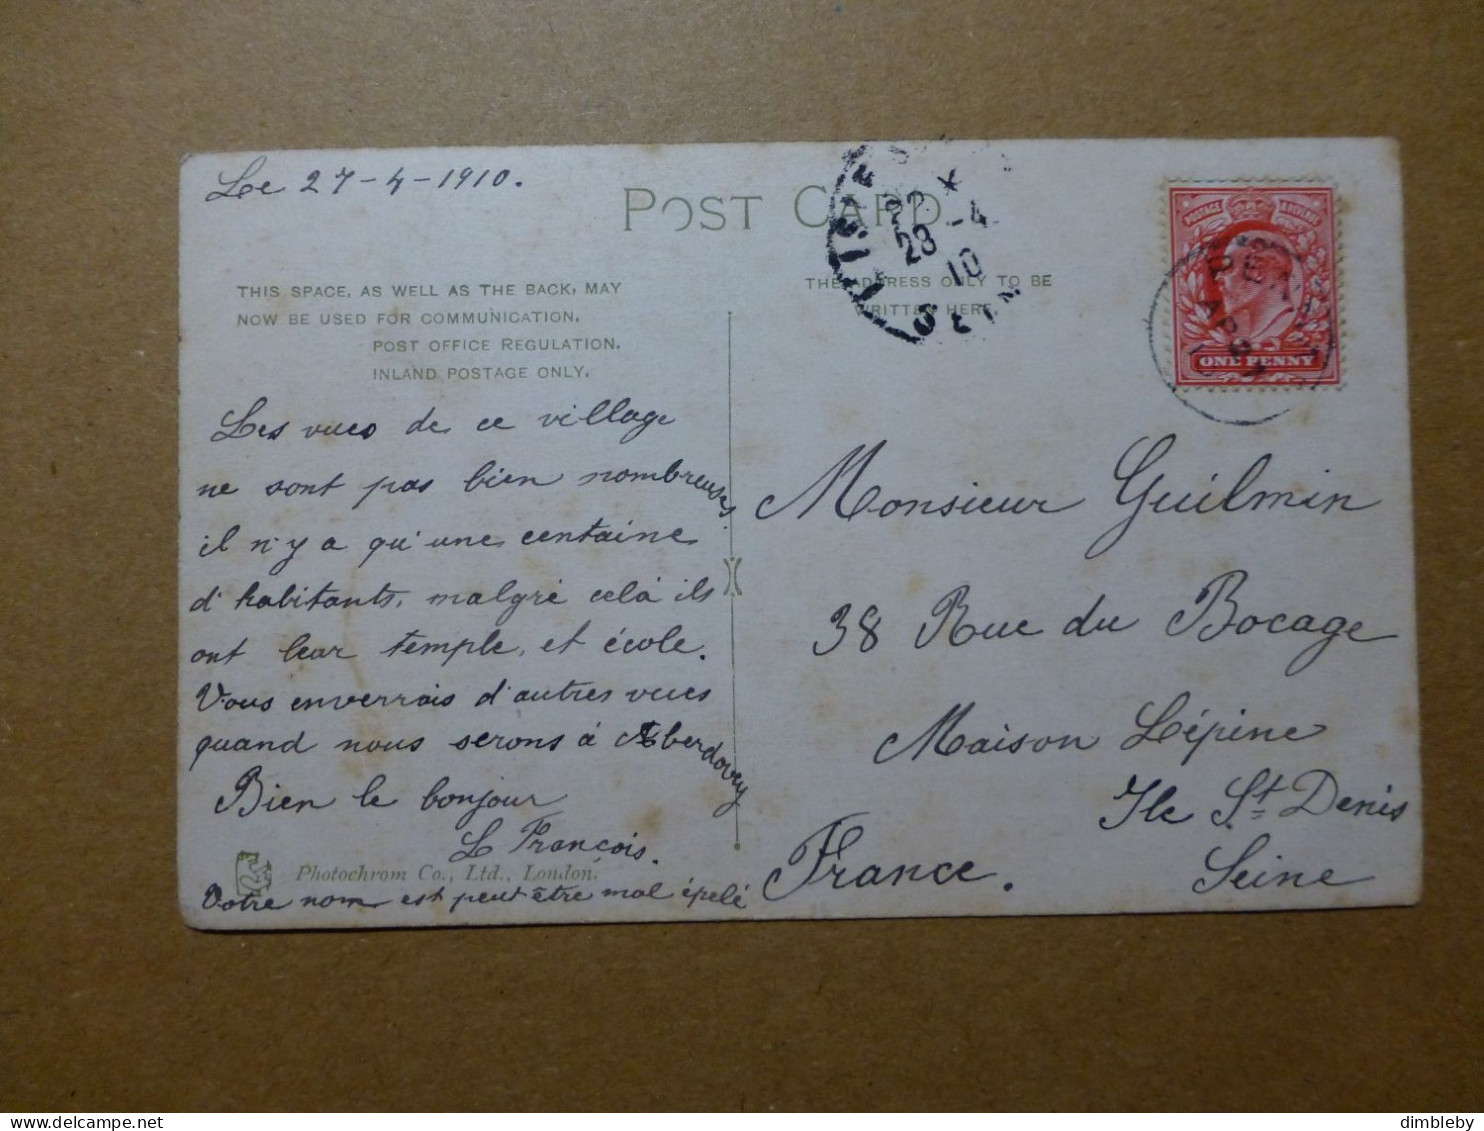 Le 27-4-1910.
POST CARD
THIS SPACE, AS WELL AS THE BACK, MAY
NOW BE USED FOR COMMUNICATION.
POST OFFICE REGULATION.
INLAND POSTAGE ONLY.
Les vues de ce village
ne sont pas bien nombreuses
il n'y a qu'une centaine
d'habitants, malgré celà ils
ont leur temple, et école.
Vous enverrais d'autres vues
quand nous serons à Aberdovey
Bien le bonjour
L François.
Photochrom Co., Ltd., London.
Votre nom est peut être mal épelé
THE ADDRESS ONLY TO BE
WRITTEN HERE.
28 -4
10
SEINE
POSTAGE REVENUE
ONE PENNY
Monsieur Guilmin
38 Rue du Bocage
Maison Lépine
Ile St Denis
France. Seine
delcampe.net
dimbleby